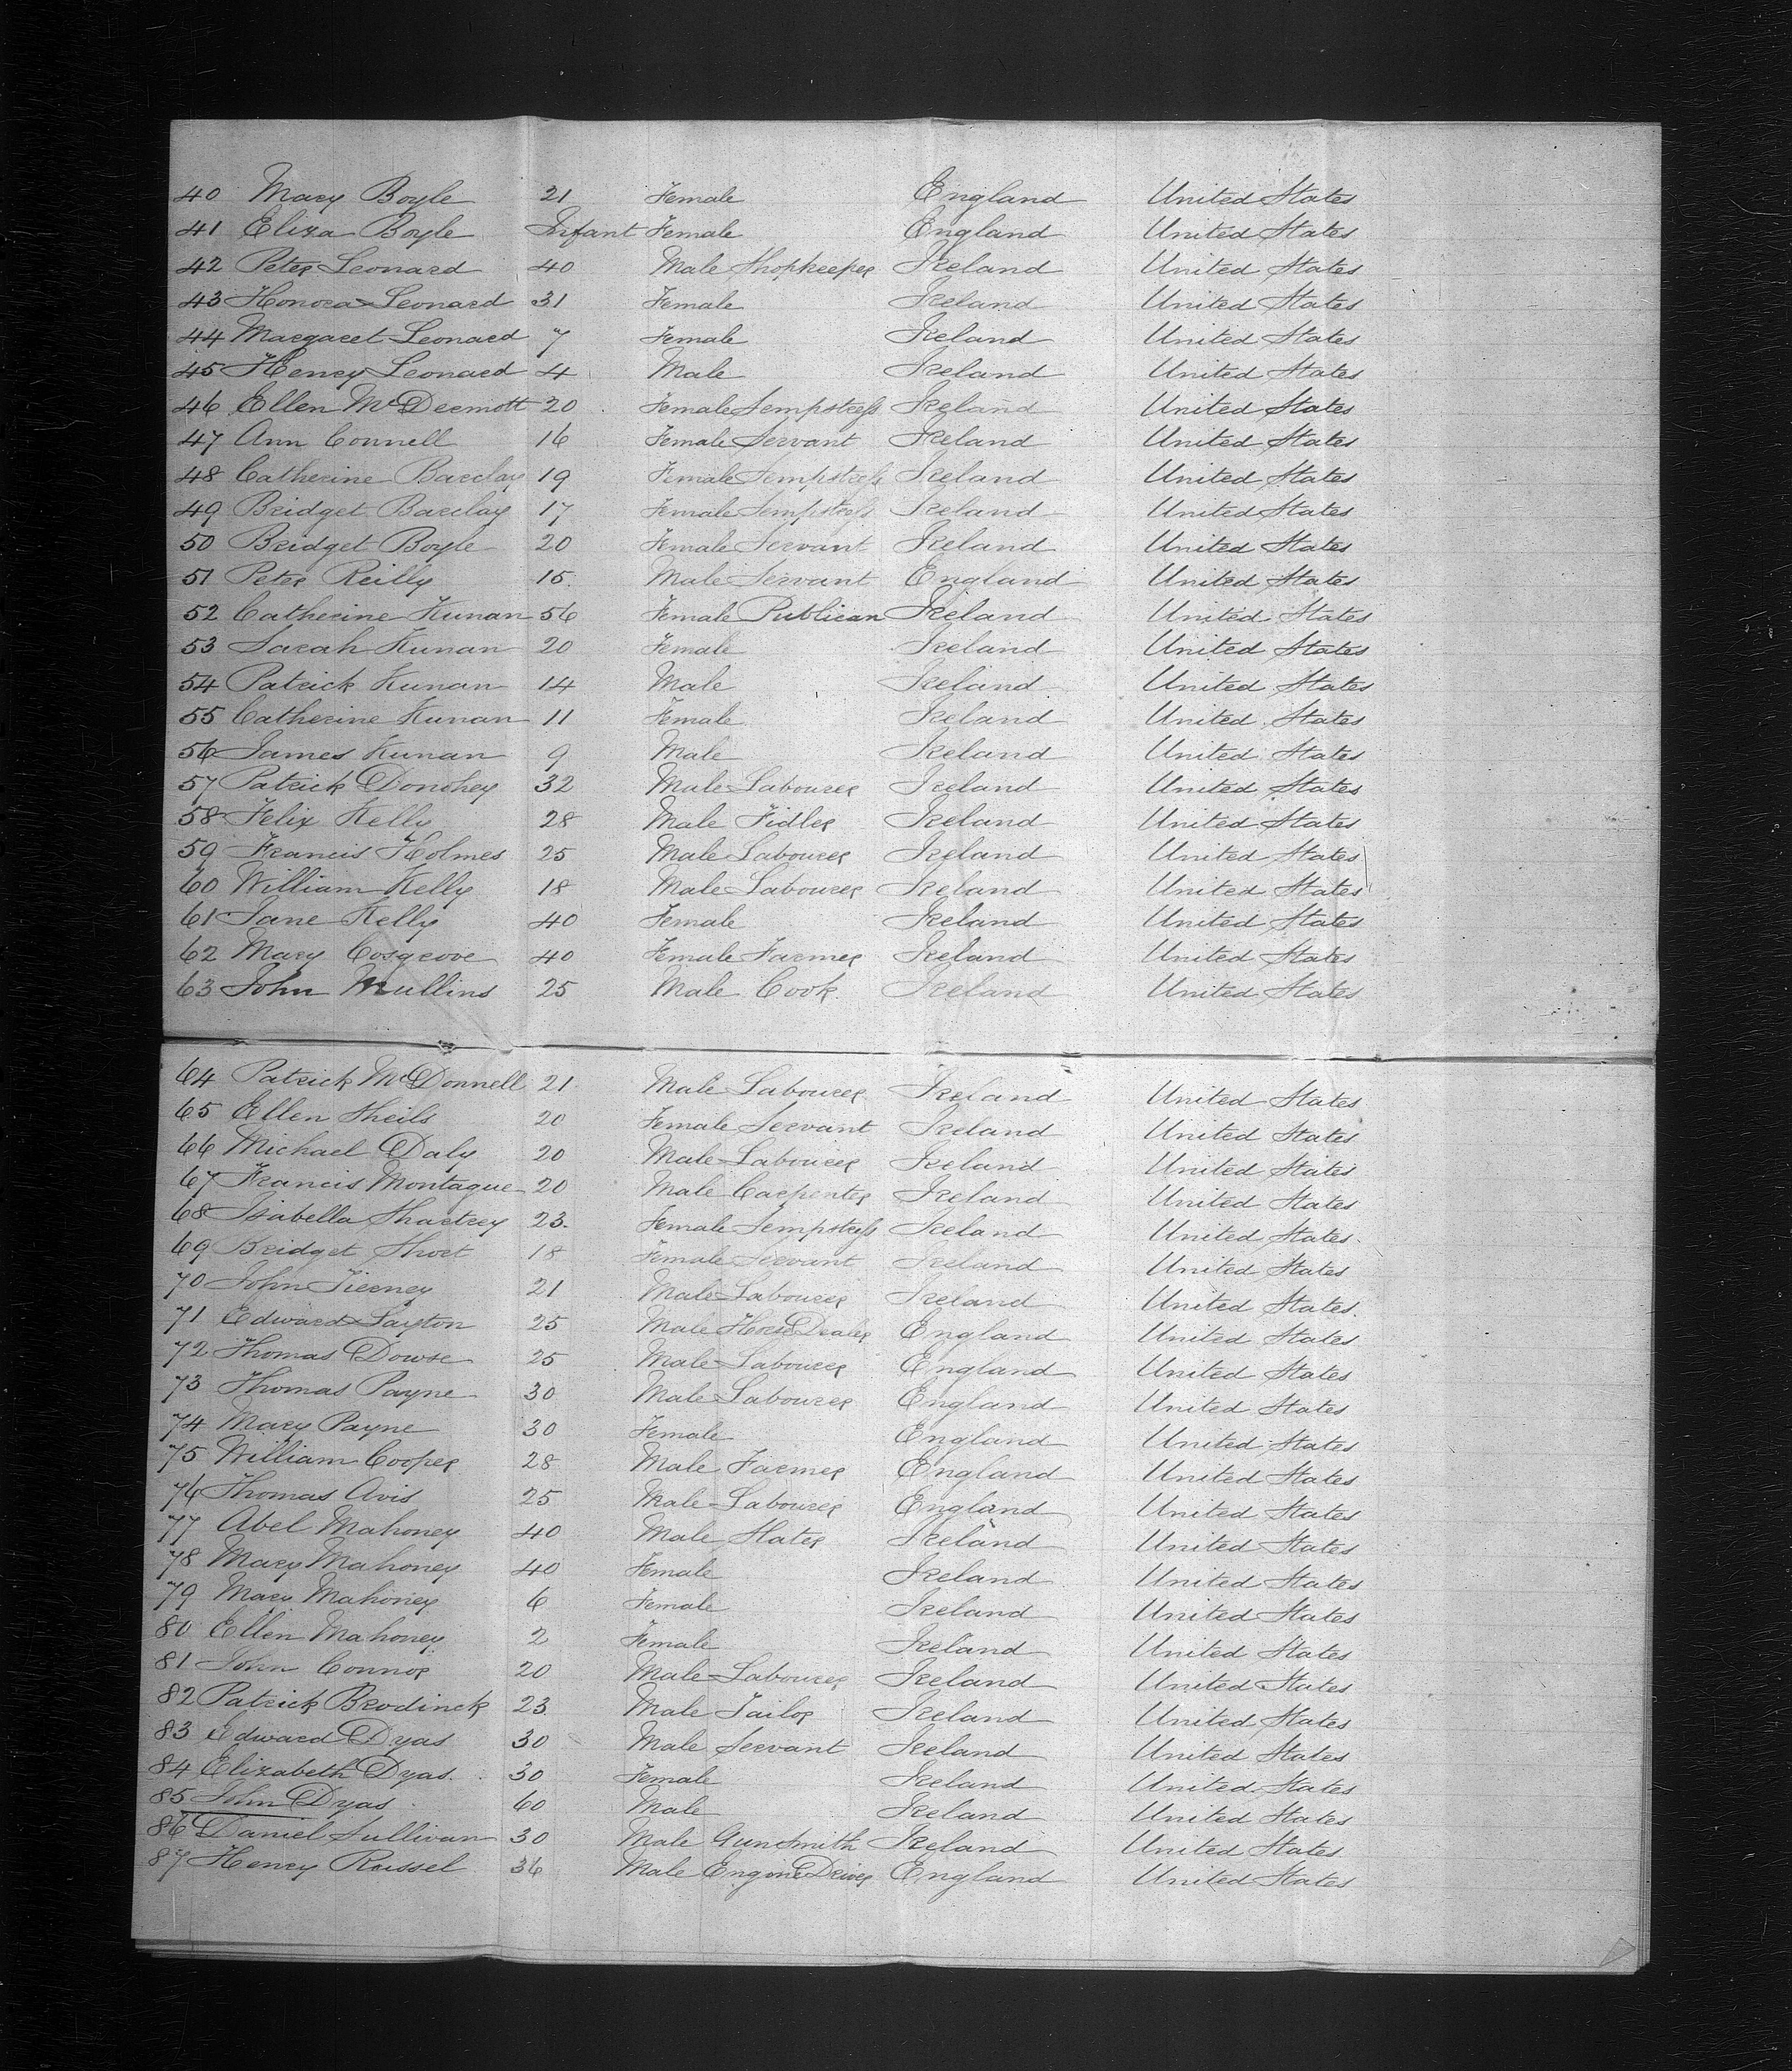 40 Mary Boyle 21 Female England United States
41 Eliza Boyle Infant Female England United States
42 Peter Leonard 40 Male Shopkeeper Ireland United States
43 Honora Leonard 31 Female Ireland United States
44 Margaret Leonard 7 Female Ireland United States
45 Henry Leonard 4 Male Ireland United States
46 Ellen McDermott 20 Female Sempstress Ireland United States
47 Ann Connell 16 Female Servant Ireland United States
48 Catherine Barclay 19 Female Sempstress Ireland United States
49 Bridget Barclay 17 Female Sempstress Ireland United States
50 Bridget Boyle 20 Female Servant Ireland United States
51 Peter Reilly 15 Male Servant England United States
52 Catherine Kunan 56 Female Publican Ireland United States
53 Sarah Kunan 20 Female Ireland United States
54 Patrick Kunan 14 Male Ireland United States
55 Catherine Kunan 11 Female Ireland United States
56 James Kunan 9 Male Ireland United States
57 Patrick Donohey 32 Male Labourer Ireland United States
58 Felix Kelly 28 Male Fidler Ireland United States
59 Francis Holmes 25 Male Labourer Ireland United States
60 William Kelly 18 Male Labourer Ireland United States
61 Jane Kelly 40 Female Ireland United States
62 Mary Cosgrove 40 Female Farmer Ireland United States
63 John Mullins 25 Male Cook Ireland United States
64 Patrick McDonnell 21 Male Labourer Ireland United States
65 Ellen Sheils 20 Female Servant Ireland United States
66 Michael Daly 20 Male Labourer Ireland United States
67 Francis Montague 20 Male Carpenter Ireland United States
68 Isabella Shartrey 23 Female Sempstress Ireland United States
69 Bridget Short 18 Female Servant Ireland United States
70 John Tierney 21 Male Labourer Ireland United States
71 Edward Layton 25 Male Horse Dealer England United States
72 Thomas Dowse 25 Male Labourer England United States
73 Thomas Payne 30 Male Labourer England United States
74 Mary Payne 30 Female England United States
75 William Cooper 28 Male Farmer England United States
76 Thomas Avis 25 Male Labourer England United States
77 Abel Mahoney 40 Male Slater Ireland United States
78 Mary Mahoney 40 Female Ireland United States
79 Mary Mahoney 6 Female Ireland United States
80 Ellen Mahoney 2 Female Ireland United States
81 John Connor 20 Male Labourer Ireland United States
82 Patrick Brodinck 23 Male Tailor Ireland United States
83 Edward Dyas 30 Male Servant Ireland United States
84 Elizabeth Dyas 30 Female Ireland United States
85 John Dyas 60 Male Ireland United States
86 Daniel Sullivan 30 Male Gunsmith Ireland United States
87 Henry Russel 36 Male Engine Driver England United States